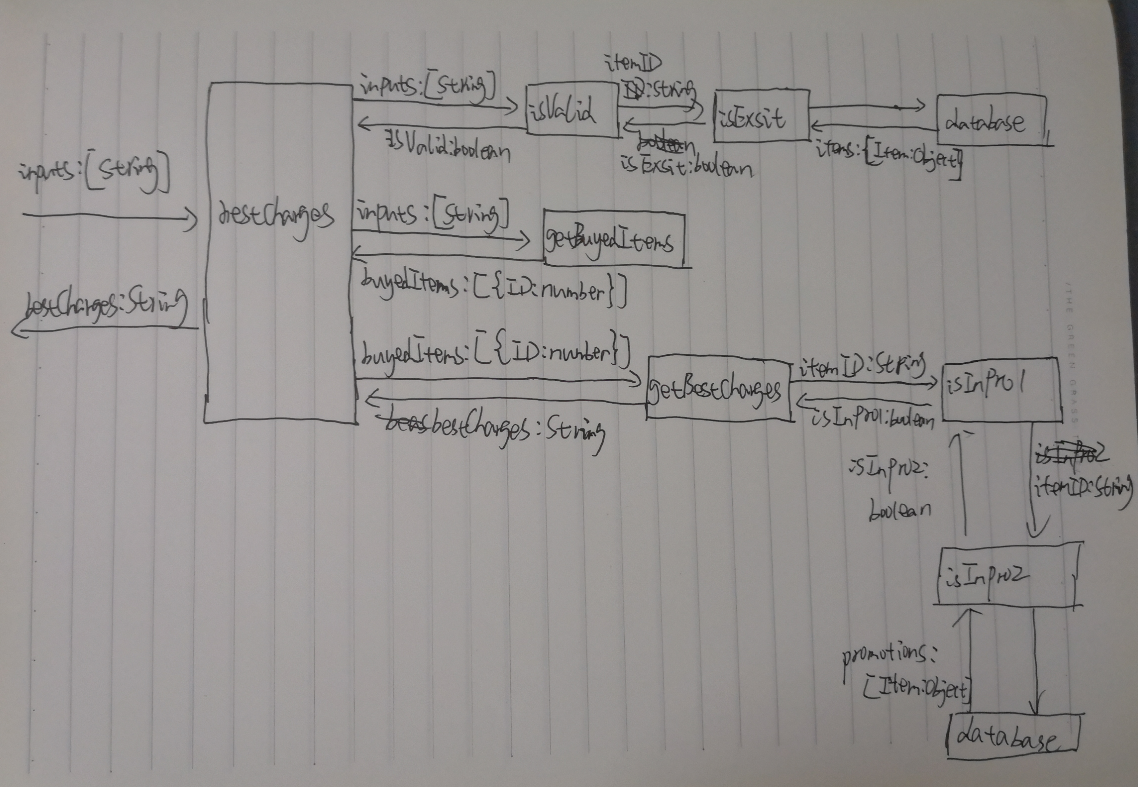 inputs:[String]
bestCharges:String
bestCharges
inputs:[String]
isValid:boolean
isValid
itemID
ID:String
boolean
isExsit:boolean
isExsit
items:[Item:Object]
database
inputs:[String]
buyedItems:[{ID:number}]
getBuyedItems
buyedItems:[{ID:number}]
bestCharges:String
getBestCharges
itemID:String
isInPro1:boolean
isInPro1
isInPro2:
boolean
isInPro2
itemID:String
isInPro2
promotions:
[Item:Object]
database
THE GREEN GRASS